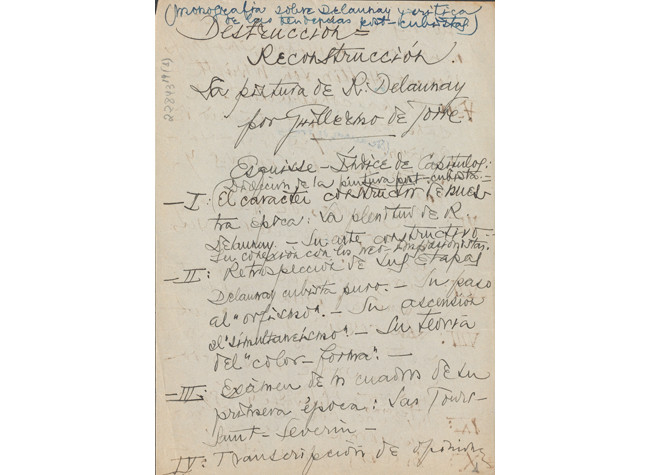 (Monografía sobre Delaunay y crítica
de las tendencias post-cubistas)
Destrucción =
Reconstrucción.
La pintura de R. Delaunay
por Guillermo de Torre.
22843 19(2)
Esquisse – Índice de Capítulos:
de la pintura post-cubista =
— I: El carácter constructor de nues-
tra época: La plenitud de R.
Delaunay. – Su arte constructivo –
Su conexión con los neo-impresionistas.
— II: Retrospección de sus etapas
Delaunay cubista puro. – Su paso
al "orfismo". – Su ascensión
al "simultaneísmo". – Su teoría
del "color-forma". –
— III: Exámen de los cuadros de su
primera época: Las Tours-
Saint-Severin –
IV: Transcripción de opiniones